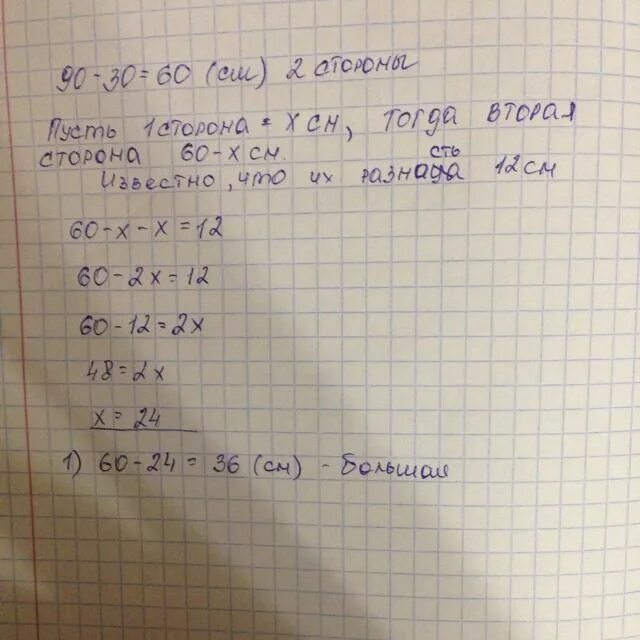 90-30=60 (см) 2 стороны
Пусть 1 сторона = x см, тогда вторая
сторона 60-x см.
Известно, что их разность 12 см
60-x-x=12
60-2x=12
60-12=2x
48=2x
x=24
1) 60-24=36 (см) - Большая